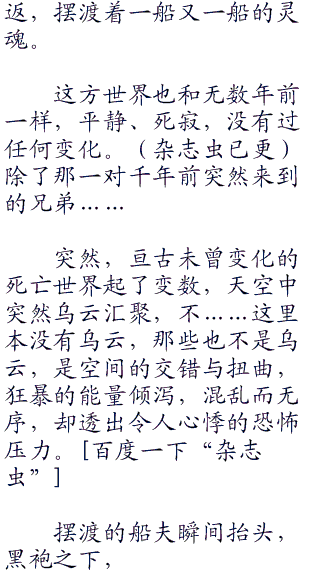 返，摆渡着一船又一船的灵
魂。
这方世界也和无数年前
一样，平静、死寂，没有过
任何变化。（杂志虫已更）
除了那一对千年前突然来到
的兄弟……
突然，亘古未曾变化的
死亡世界起了变数，天空中
突然乌云汇聚，不……这里
本没有乌云，那些也不是乌
云，是空间的交错与扭曲，
狂暴的能量倾泻，混乱而无
序，却透出令人心悸的恐怖
压力。[百度一下“杂志
虫”]
摆渡的船夫瞬间抬头，
黑袍之下，